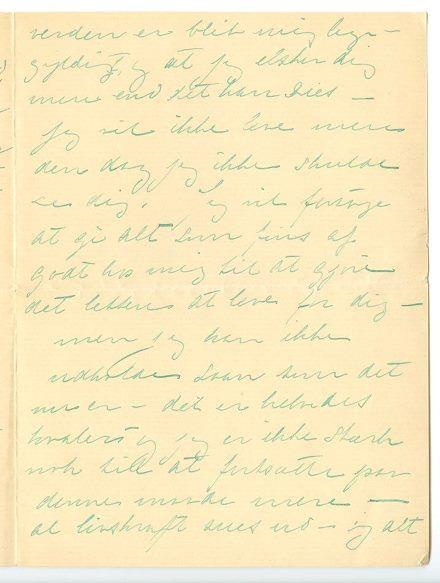 verden er blit mig lige-
gyldigt, og at jeg elsker dig
mere end det kan sies —
jeg vil ikke leve mere
den dag jeg ikke skulde
se dig. Jeg vil forsøge
at gi alt som fins af
godt hos mig til at gjøre
det lettere at leve for dig —
men jeg kan ikke
udholde saan som det
nu er — det er helvedes
kvaler og jeg er ikke stærk
nok till at fortsætte paa
denne maade mere —
al livskraft sues ud — og alt